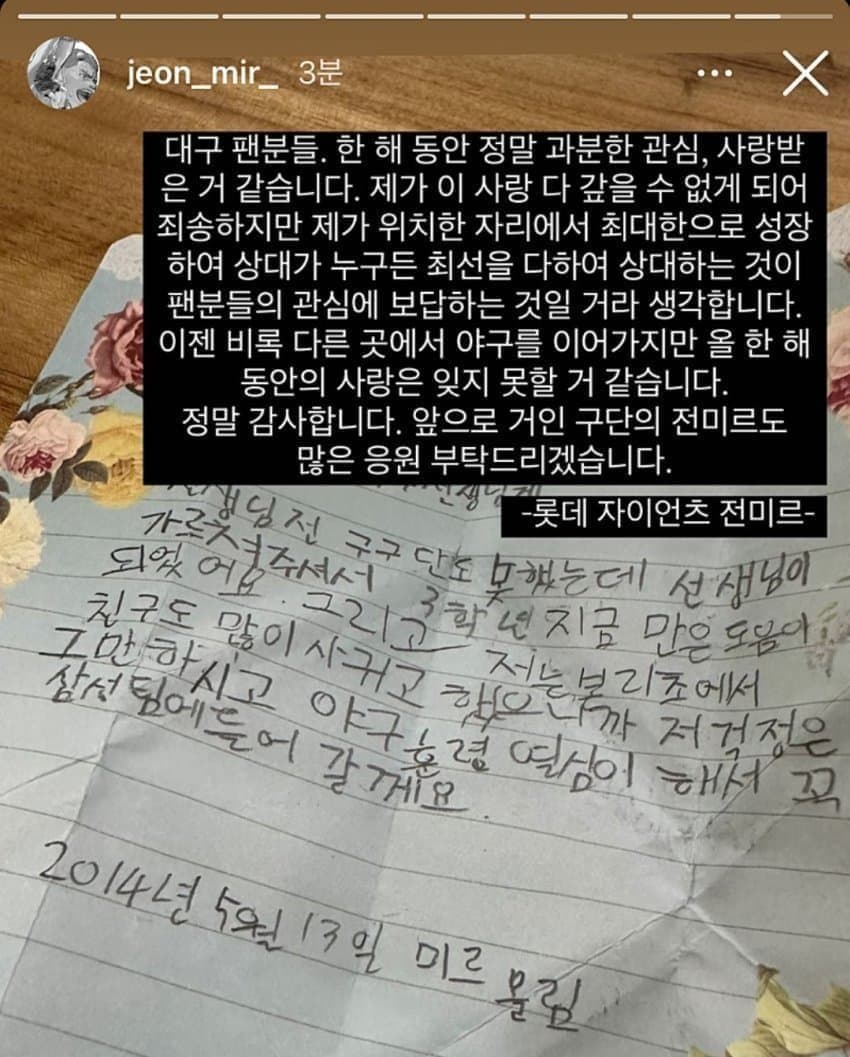 jeon_mir_ 3분
대구 팬분들. 한 해 동안 정말 과분한 관심, 사랑받
은 거 같습니다. 제가 이 사랑 다 갚을 수 없게 되어
죄송하지만 제가 위치한 자리에서 최대한으로 성장
하여 상대가 누구든 최선을 다하여 상대하는 것이
팬분들의 관심에 보답하는 것일 거라 생각합니다.
이젠 비록 다른 곳에서 야구를 이어가지만 올 한 해
동안의 사랑은 잊지 못할 거 같습니다.
정말 감사합니다. 앞으로 거인 구단의 전미르도
많은 응원 부탁드리겠습니다.
-롯데 자이언츠 전미르-
선생님께
선생님 전 구구단도 못했는데 선생님이
가르쳐주셔서 3학년 지금 만은 도움이
되었어요. 그리고 저는 본리초에서
친구도 많이 사귀고 했으니까 저 걱정은
그만하시고 야구 훈령 열심이 해서 꼭
삼성팀에 들어 갈게요.
2014년 5월 13일 미르 올림